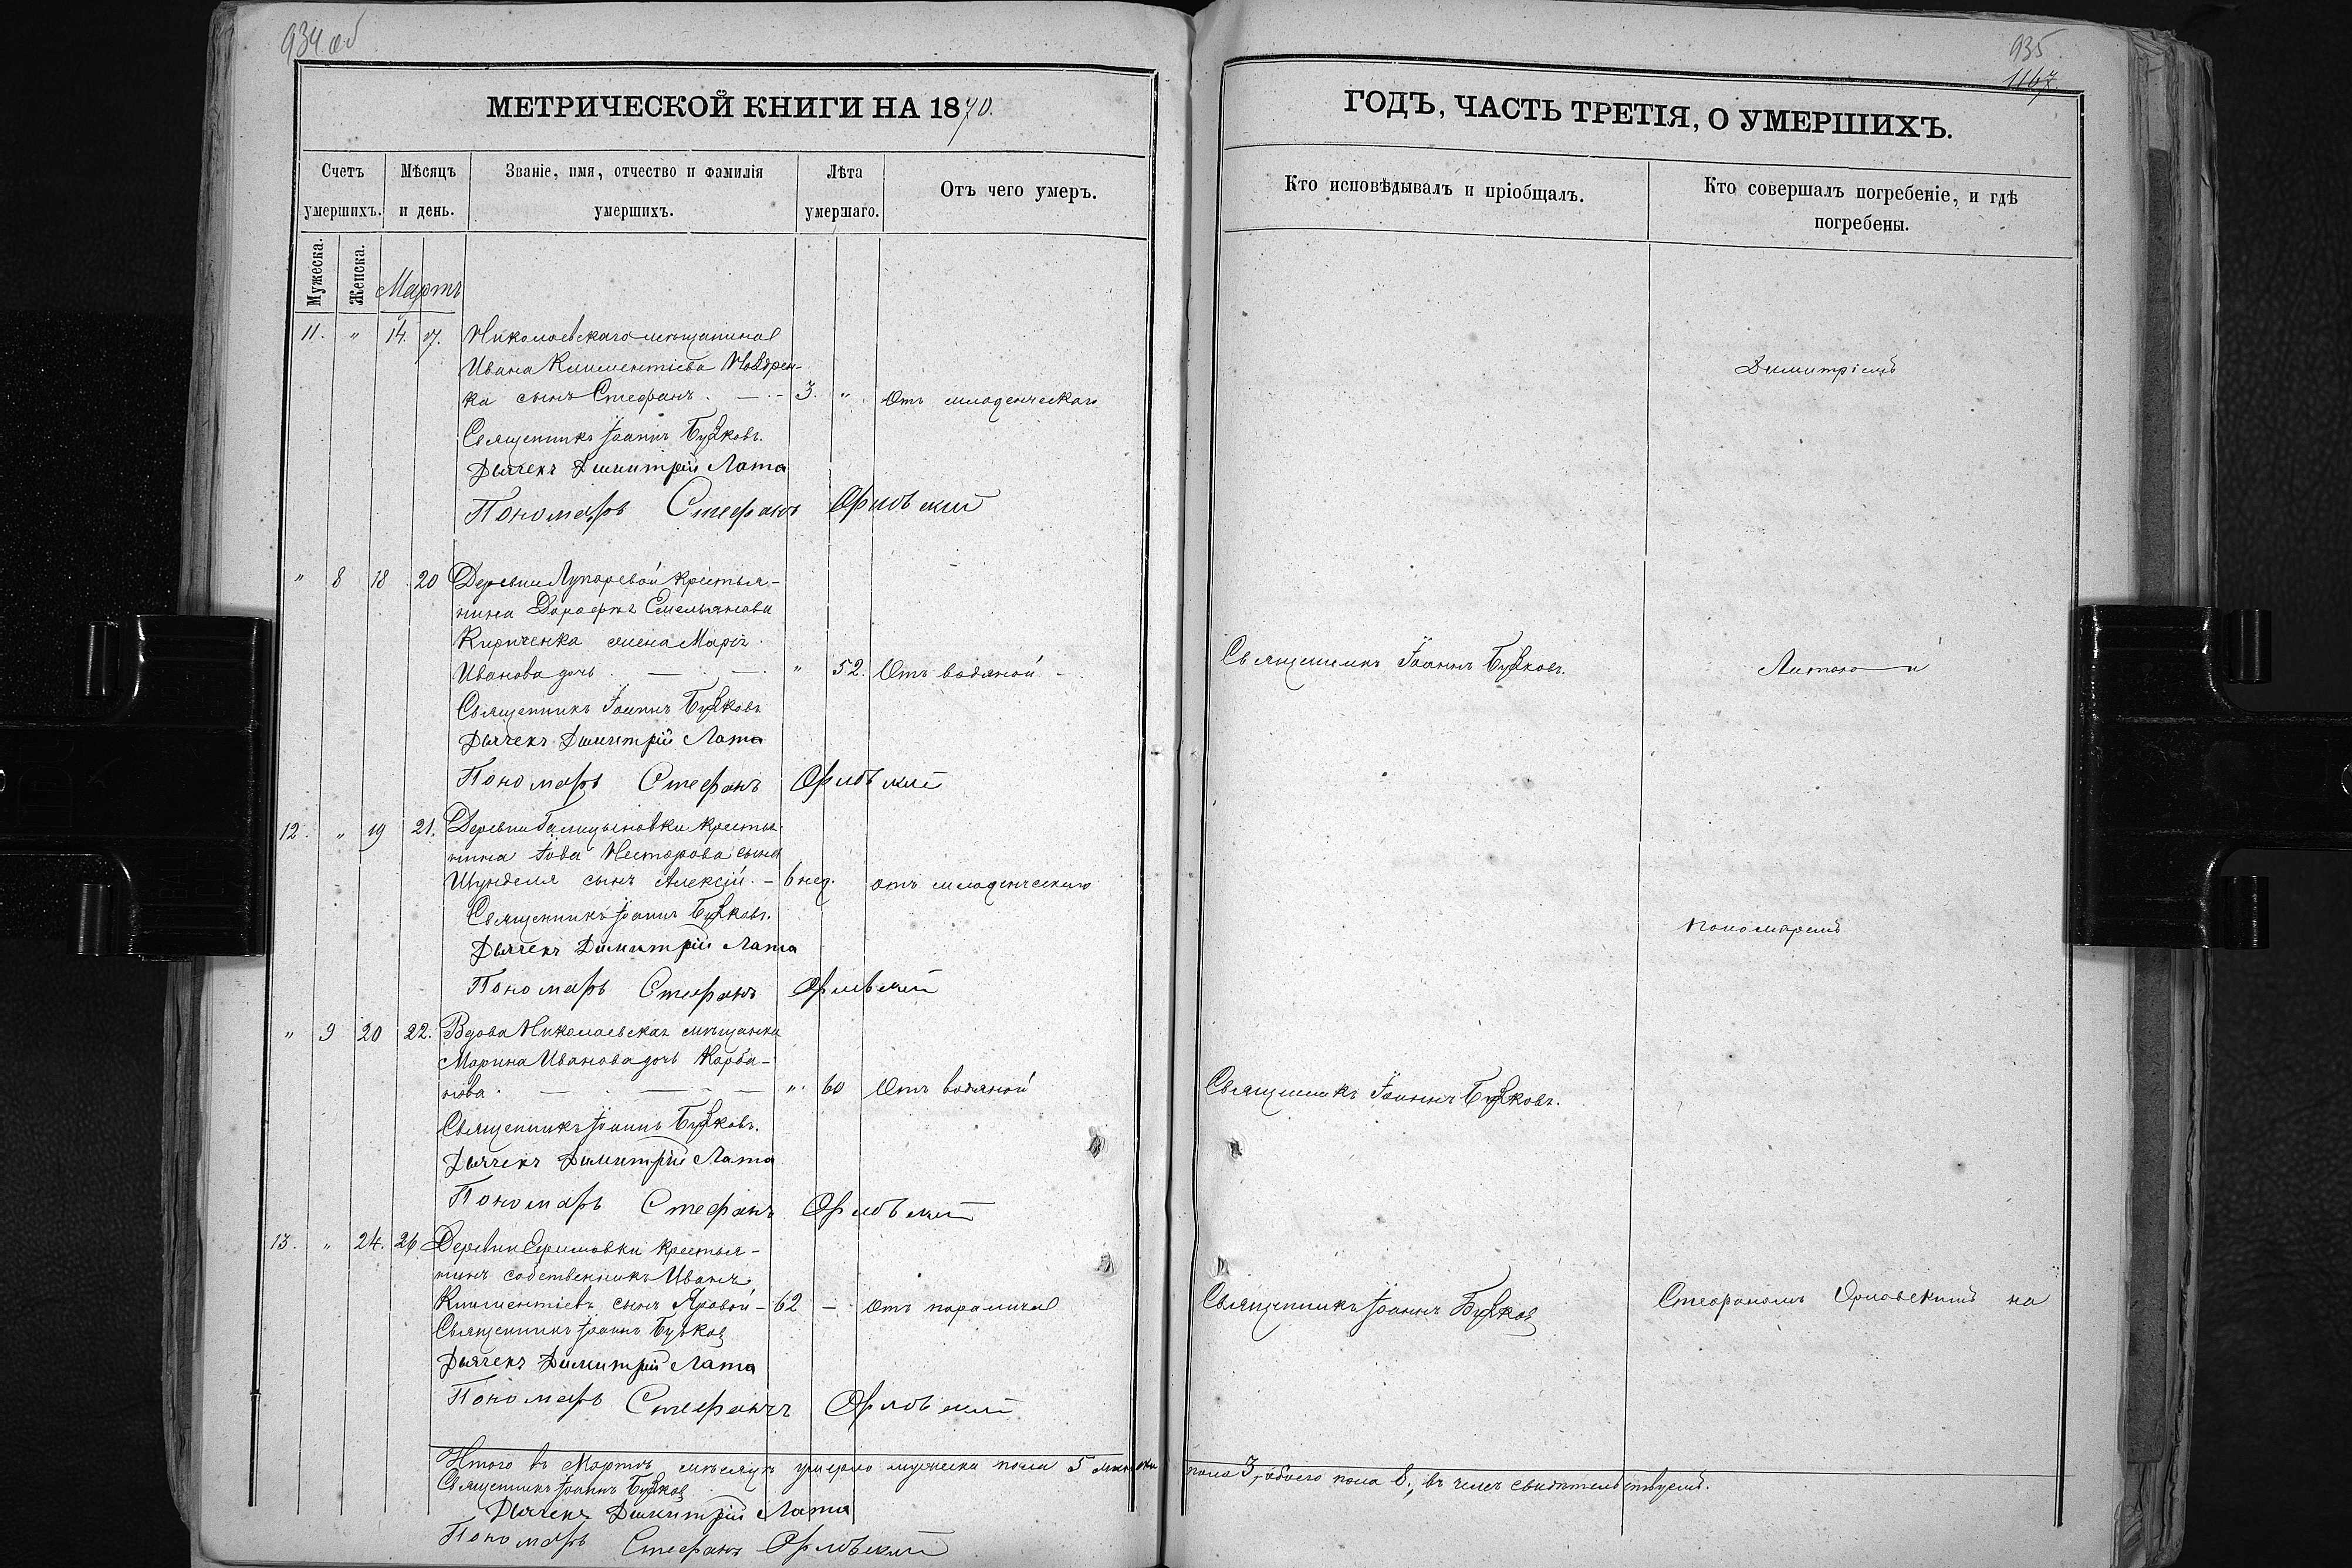 934 об
МЕТРИЧЕСКОЙ КНИГИ НА 1870.
Счетъ умершихъ.
Мѣсяцъ и день.
Званіе, имя, отчество и фамилія умершихъ.
Лѣта умершаго.
Отъ чего умеръ.
Мужеска.
Женска.
Мартъ
11. " 14. 17. Николаевскаго мѣщанина
Ивана Климентіева
ка сынъ Стефанъ. — - 3. " Отъ младенческаго
Священникъ Іоаннъ Бужковъ.
Дьячекъ Димитрій Лата
Пономарь Стефанъ Орловскій
" 8 18 20 Деревни Лупаревой крестья-
нина Дорофея Емельянова
Кириченка жена Марія
Иванова дочь. — . — . " 52. Отъ водяной
Священникъ Іоаннъ Бужковъ
Дьячекъ Димитрій Лата
Пономарь Стефанъ Орловскій
12. " 19 21. Деревни Галицыновки крестья-
нина Іова Несторова сына
Шунделя сынъ Алексій. - 6 нед. отъ младенческаго
Священникъ Іоаннъ Бужковъ.
Дьячекъ Димитрій Лата
Пономарь Стефанъ Орловскій
" 9 20 22. Вдова Николаевская мѣщанка
Марина Иванова дочь Карба-
нова. — . — — - ". 60 Отъ водяной
Священникъ Іоаннъ Бужковъ.
Дьячекъ Димитрій Лата
Пономарь Стефанъ Орловскій
13. " 24. 26 Деревни Ефимовки крестья-
нинъ собственникъ Иванъ
Климентіевъ сынъ Яровой - 62 — Отъ паралича
Священникъ Іоаннъ Бужковъ
Дьячекъ Димитрій Лата
Пономарь Стефанъ Орловскій
Итого въ Мартѣ мѣсяцѣ умерло мужеска пола 5 женска
Священникъ Іоаннъ Бужковъ
Дьячекъ Димитрій Лата
Пономарь Стефанъ Орловскій
935
1147
ГОДЪ, ЧАСТЬ ТРЕТІЯ, О УМЕРШИХЪ.
Кто исповѣдывалъ и пріобщалъ.
Кто совершалъ погребеніе, и гдѣ погребены.
Димитріемъ
Священникъ Іоаннъ Бужковъ.
Латою и
пономаремъ
Священникъ Іоаннъ Бужковъ.
Священникъ Іоаннъ Бужковъ
Стефаномъ Орловскимъ на
пола 3, обоего пола 8., въ чемъ свидѣтельствуемъ.